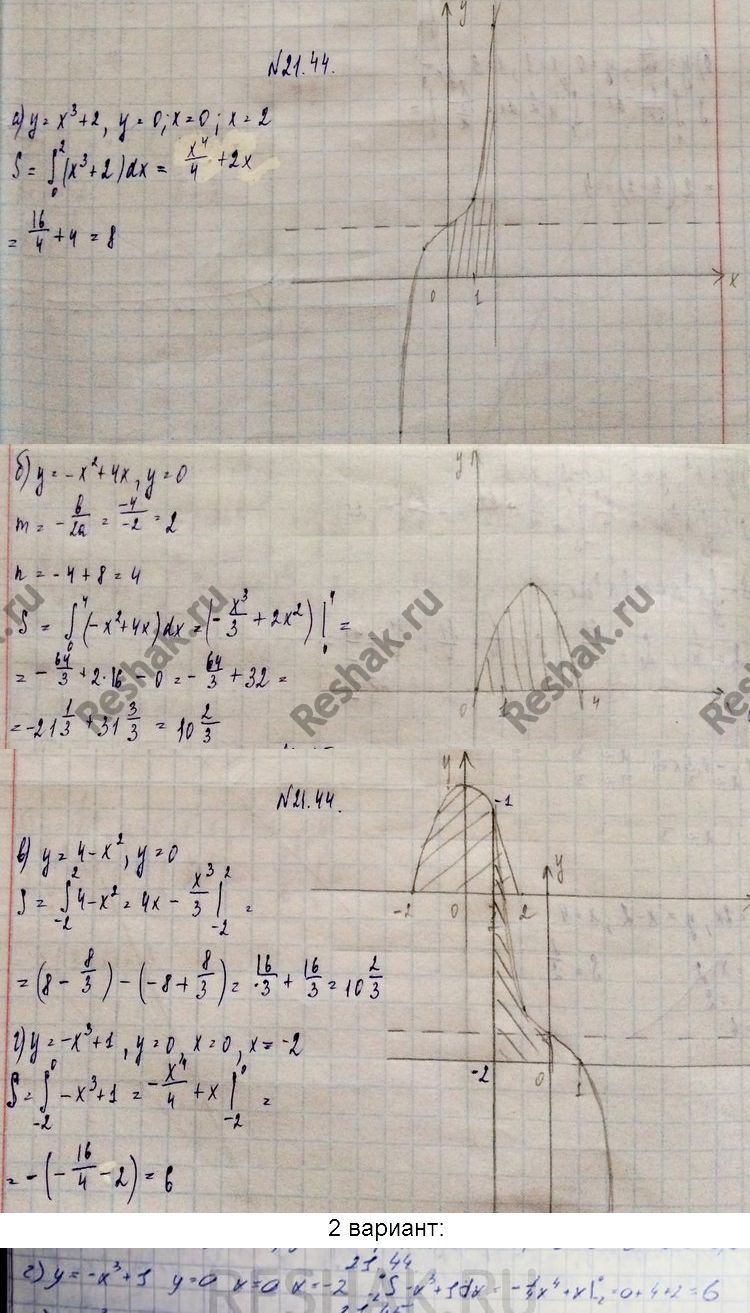 №21.44.
y
а) y = x³+2, y = 0; x = 0; x = 2
S = ∫₀² (x³+2)dx = x⁴/4 + 2x
= 16/4 + 4 = 8
0 1 x
б) y = -x²+4x, y = 0
y
m = -b/2a = -4/-2 = 2
n = -4+8 = 4
S = ∫₀⁴ (-x²+4x)dx = (-x³/3 + 2x²)|₀⁴ =
= -64/3 + 2·16 - 0 = -64/3 + 32 =
= -21 1/3 + 31 3/3 = 10 2/3
0 1 4
Reshak.ru
Reshak.ru
№21.44.
y
-1
в) y = 4-x², y = 0
y
S = ∫₋₂² 4-x² = 4x - x³/3 |₋₂² =
-2 0 2
= (8 - 8/3) - (-8 + 8/3) = 16/3 + 16/3 = 10 2/3
г) y = -x³+1, y = 0, x = 0, x = -2
-2 0 1
S = ∫₋₂⁰ -x³+1 = -x⁴/4 + x |₋₂⁰ =
= -(-16/4 - 2) = 6
2 вариант:
21.44
г) y = -x³+1 y = 0 x = 0 x = -2 ∫₋₂⁰ -x³+1dx = -1/4x⁴+x|₋₂⁰ = 0+4+2 = 6
RESHAK.RU
21.45